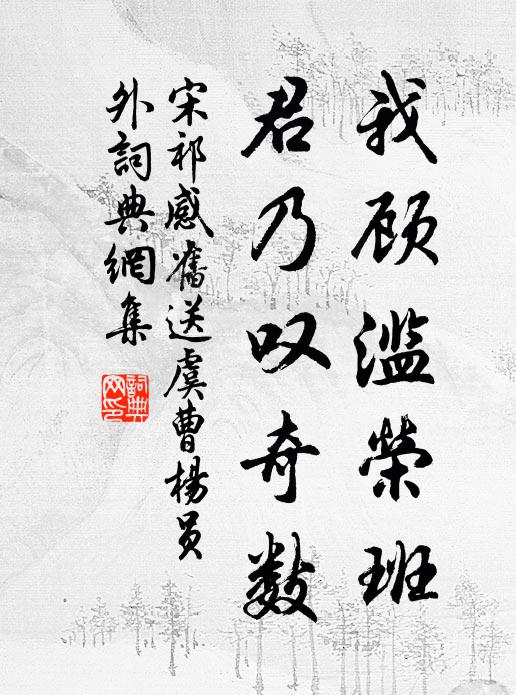 我顾滥荣班
君乃叹奇数
宋祁感旧送虞曹杨员
外词典網集
詞典
网印